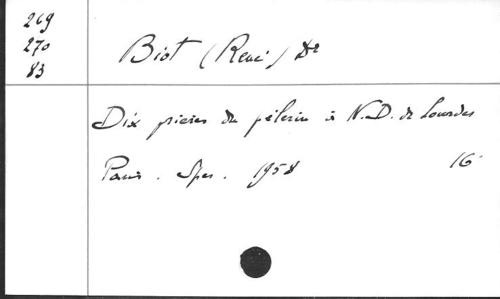 269
270
83
Biot (René) Dr
Dix prières du pèlerin à N.D. de Lourdes
Paris. Spes. 1958 16°